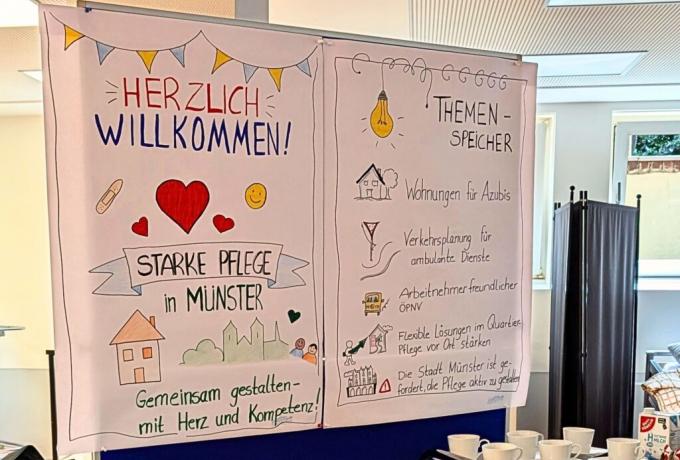 HERZLICH
WILLKOMMEN!
STARKE PFLEGE
in MÜNSTER
Gemeinsam gestalten-
mit Herz und Kompetenz!
THEMEN-
SPEICHER
Wohnungen für Azubis
Verkehrsplanung für
ambulante Dienste
Arbeitnehmerfreundlicher
ÖPNV
Flexible Lösungen im Quartier-
Pflege vor Ort stärken
Die Stadt Münster ist ge-
fordert, die Pflege aktiv zu gestalten
MILCH